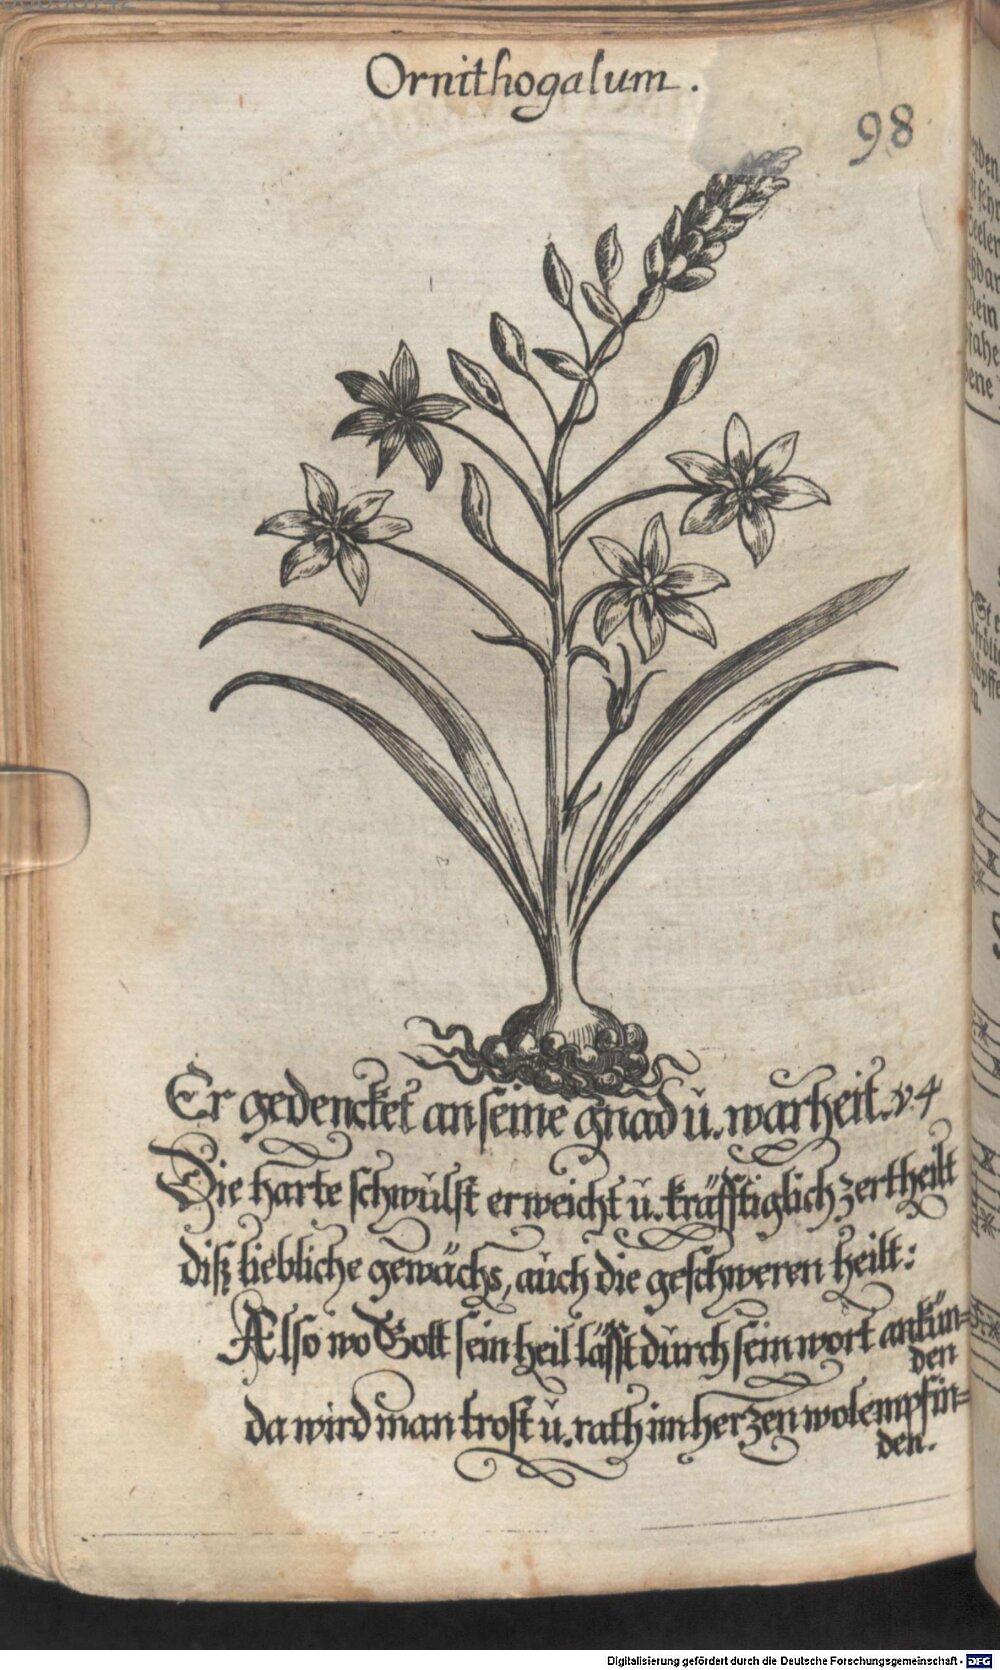 Ornithogalum.
98
Er gedencket an seine gnad ŭ. warheit. v. 4
Die harte schwŭlst erweicht ŭ. kräfftiglich zertheilt
diß liebliche gewächs, aŭch die geschweren heilt:
Also wo Gott sein heil lässt dŭrch sein wort ankün=
den
da wird man trost ŭ. rath im herzen wol empfin=
den.
Digitalisierung gefördert durch die Deutsche Forschungsgemeinschaft - DFG